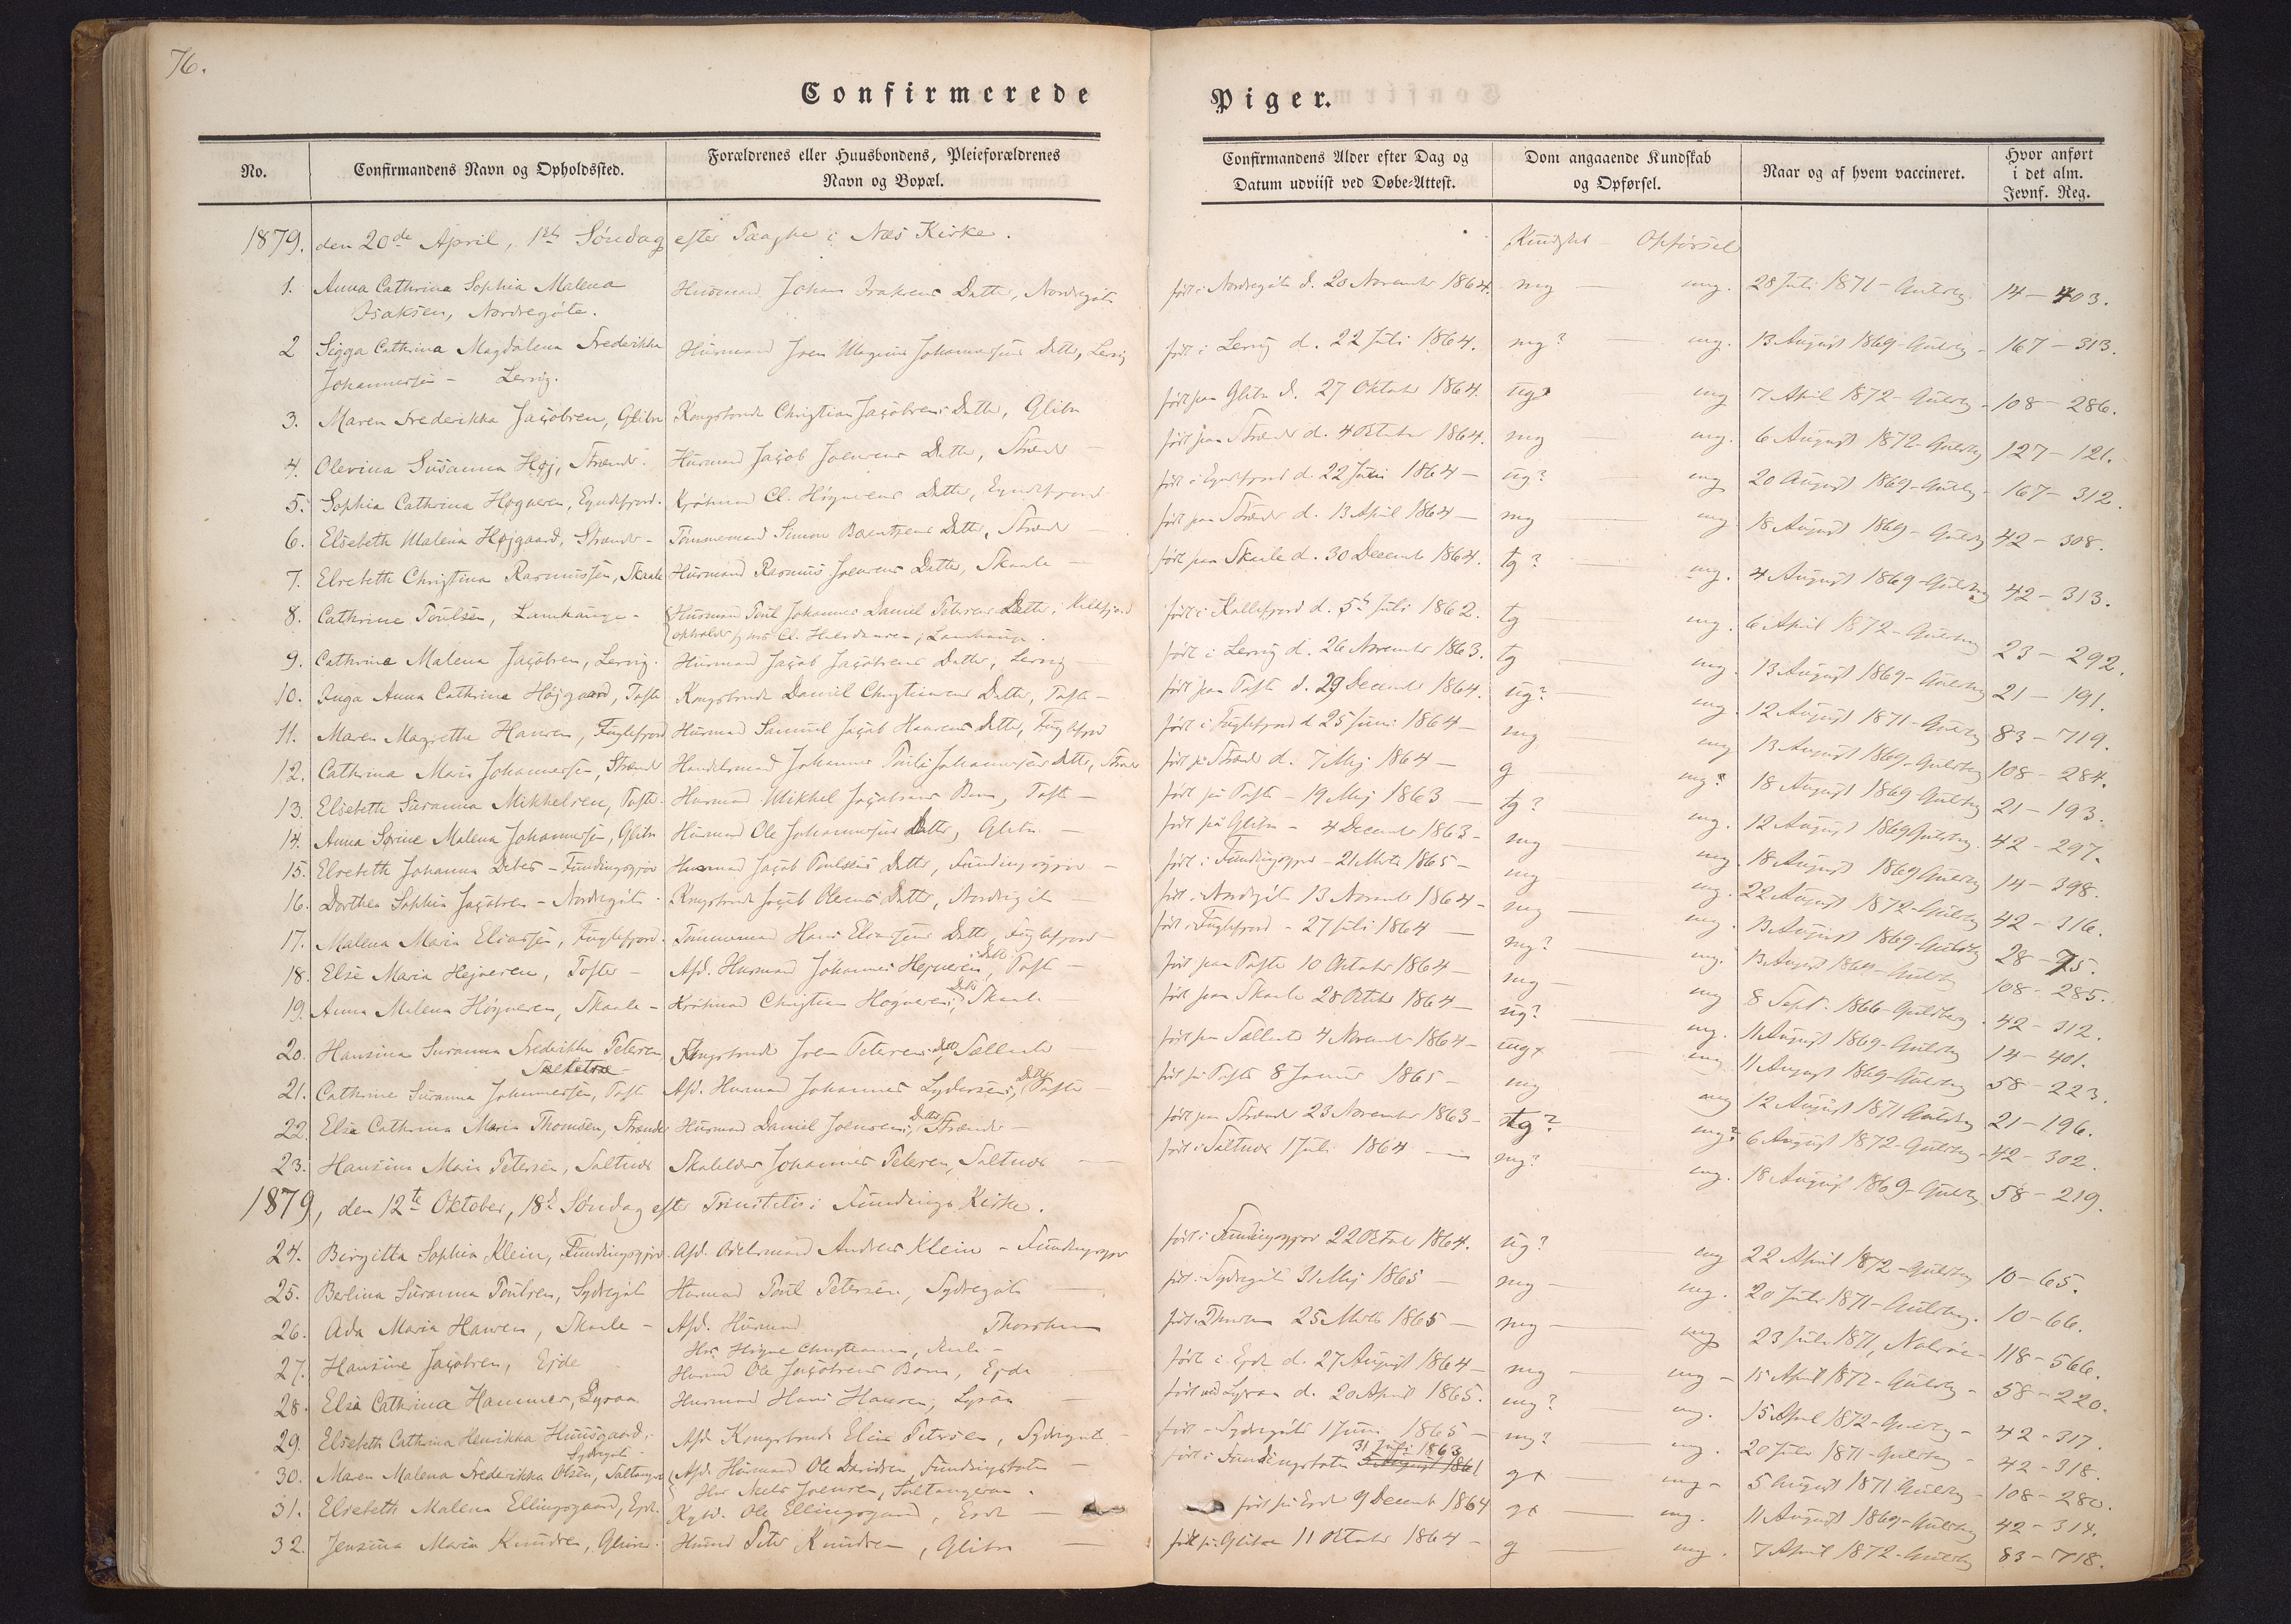 76.
Confirmerede
Piger.
No.
Confirmandens Navn og Opholdssted.
Forældrenes eller Huusbondens, Pleieforældrenes
Navn og Bopæl.
Confirmandens Alder efter Dag og
Datum udviist ved Døbe-Attest.
Dom angaaende Kundskab
og Opførsel.
Naar og af hvem vaccineret.
Hvor anført
i det alm.
Jevnf. Reg.
1879. den 20de April, 1ste Søndag efter Paaske i Næs Kirke.
Kundskab - Opførsel
1. Anna Cathrina Sophia Malena Husmand Johan Isaksens Datter, Nordregöte født i Nordregöte d. 20 November 1864. mg mg. 28 Juli 1871 - Guldbg 14 - 403.
Isaksen, Nordregöte.
2 Sigga Cathrina Magdalena Frederikka Husmand Joen Magnus Johannesens Datter, Lervig født i Lervig d. 22 Juli 1864. mg? mg. 13 August 1869 - Guldbg - 167 - 313.
Johannesen - Lervig.
3. Maren Frederikka Jacobsen, Glibre Kongsbonde Christian Jacobsens Datter, Glibre født paa Glibre d. 27 Oktober 1864. ug mg 7 April 1872 - Guldbg - 108 - 286.
4. Olevina Susanna Høj, Strænder Husmand Jacob Joensens Datter, Strænder født paa Strænder d. 4 Oktober 1864. mg mg. 6 August 1872 - Guldbg 127 - 121.
5. Sophia Cathrina Høgnesen, Eyndefjord. Cl. Högnesens Datter, Eyndefjord født i Eyndefjord d. 22 Juni 1864 - ug? mg 20 August 1869 - Guldbg - 167 - 312.
6. Elsebeth Malena Højgaard, Strænder - Tømmermand Simon Baentsens Datter, Strænder født paa Strænder d. 13 April 1864 - mg mg 18 August 1869 - Guldbg 42 - 308.
7. Elsebeth Christina Rasmussen, Skaale Husmand Rasmus Joensens Datter, Skaale født paa Skaale d. 30 December 1864. tg? mg. 4 August 1869 - Guldbg 42 - 313.
8. Cathrine Poulsen, Lamhauge - Husmand Poul Johannes Daniel Petersens Datter, Kollefjord født i Kollefjord d. 5te Juli 1862. tg mg. 6 April 1872 - Guldbg 23 - 292.
opholder sig hos Cl. Lamhauge.
9. Cathrina Malena Jacobsen, Lervig. Husmand Jacob Jacobsens Datter, Lervig født i Lervig d. 26 November 1863. tg mg. 13 August 1869 - Guldbg 21 - 191.
10. Inga Anna Cathrine Højgaard, Tofte Kongsbonde Daniel Christiansens Datter, Tofte - født paa Tofte d. 29 December 1864. ug? mg. 12 August 1871 - Guldbg 83 - 719.
11. Maren Magrethe Hansen, Fuglefjord Husmand Samuel Jacob Hansens Datter, Fuglefjord født i Fuglefjord d 25 Juni 1864 - mg mg 13 August 1869 - Guldberg 108 - 284.
12. Cathrina Maria Johannessen, Strænder Handelsmand Johannes Pauli Johannesens Datter, Strænder født på Strænder d. 7 Maj 1864 - g mg? 18 August 1869 Guldbg 21 - 193.
13. Elsebeth Susanna Mikkelsen, Tofte. Husmand Mikkel Jacobsens Barn, Tofte - født på Tofte - 19 Maj 1863 - tg? mg. 12 August 1869 Guldbg. 42 - 297.
14. Anna Sørine Malena Johannesen, Glibre Husmand Ole Johannesens Datter, Glibre - født på Glibre - 4 December 1863 - mg mg. 18 August 1869 Guldbg 14 - 398.
15. Elsebeth Johanna Debes - Fundingsgjov Husmand Jacob Poulsens Datter, Fundingsgjov - født i Fundingsgjov - 21 Marts 1865 - mg mg. 22 August 1872 - Guldbg 42 - 316.
16. Dorthea Sophia Jacobsen - Nordregöte - Kongsbonde Jacob Olesens Datter, Nordregöte - født i Nordregöte 13 November 1864 - mg mg. 13 August 1869 - Guldbg 28 - 75.
17. Malena Maria Eliassen, Fuglefjord. Tømmermand Hans Eliassens Datter, Fuglefjord - født i Fuglefjord - 27 Juli 1864 - mg? mg. 13 August 1869 - Guldbg 108 - 285.
18. Else Maria Hejnesen, Tofte - Afd. Husmand Johannes Hejnesens Datter, Tofte - født paa Tofte 10 Oktober 1864 - mg - mg 8 Sept. 1866 - Guldberg 42 - 312.
19. Anna Malena Högnesen, Skaale - Christian Högnesens Datter, Skaale født paa Skaale 28 Oktober 1864 - ug? mg. 11 August 1869 - Guldbg 14 - 401.
20. Hansina Susanna Frederikke Petersen Kongsbonde Joen Petersens Datter, født 4 November 1864 - mg+ mg 11 August 1869 - Guldbg 58 - 223.
21. Cathrine Susanna Johannesen, Tofte Afd. Husmand Johannes Lydersens Datter, Tofte - født på Tofte 8 Januar 1865 - mg mg 12 August 1871 Guldbg 21 - 196.
22. Else Cathrina Maria Thomsen, Strænder Husmand Daniel Joensens Datter, Strænder - født paa Strænder 23 November 1863 - tg? mg? 6 August 1872 - Guldbg - 42 - 302.
23. Hansina Maria Petersen, Saltnæs Skoleholder Johannes Petersen, Saltnæs - født i Saltnæs 1 Juli 1864 - mg? mg. 18 August 1869 - Guldbg 58 - 219.
1879, den 12te Oktober, 18de Søndag efter Trinitatis i Fundings Kirke.
24. Birgitta Sophia Klein, Fundingsgjov. Afd. Odelsmand Andreas Klein - Fundingsgjov født i Fundingsgjov 22 Oktober 1864. ug? mg 22 April 1872 - Guldbg 10 - 65.
25. Berlina Susanna Poulsen, Sydregöte Husmand Poul Petersen, Sydregöte - født i Sydregöte 31 Maj 1865 - mg - mg. 20 Juli 1871 - Guldbg. 10 - 66.
26. Ada Maria Hansen, Skaale - Afd. Husmand Thorshavn født i Thorshavn 25 Marts 1865 - mg - mg 23 Juli 1871, Nolsöe - 118 - 566.
Hos Högne Christiansen, Skaale -
27. Hansine Jacobsen, Ejde Husmand Ole Jacobsens Barn, Ejde født i Ejde d. 27 August 1864 - mg - mg - 15 April 1872 - Guldbg - 58 - 220.
28. Else Cathrina Hammer, Lyraa Husmand Hans Hansen, Lyraa - født ved Lyraa d. 20 April 1865. mg? mg. 15 April 1872 - Guldbg - 42 - 317.
29. Elsebeth Cathrina Henrikka Huusgaard, Afd. Kongsbonde Elias Petersen, Sydregöte - født i Sydregöte 1 Juni 1865 - mg? mg. 20 Juli 1871 - Guldbg - 42 - 318.
Sydregöte - 31 Juli 1863
30. Maren Malena Frederikka Olsen, Saltangará Afd. Husmand Ole Davidsen, Fundingsbotn - født i Fundingsbotn 5 August 1861 g+ mg - 5 August 1871 Guldbg - 108 - 280.
Hos Niels Joensen, Saltangeraa.
31. Elsebeth Malena Ellingsgaard, Ejde. Kgsb. Ole Ellingsgaard, Ejde - født på Ejde 9 Decemb 1864 g+ mg. 11 August 1869 - Guldbg 42 - 314.
32. Jensina Maria Knudsen, Glibre. Husmd Peter Knudsen, Glibre - født på Glibre 11 Oktober 1864 - g mg. 7 April 1872 - Guldbg 83 - 718.